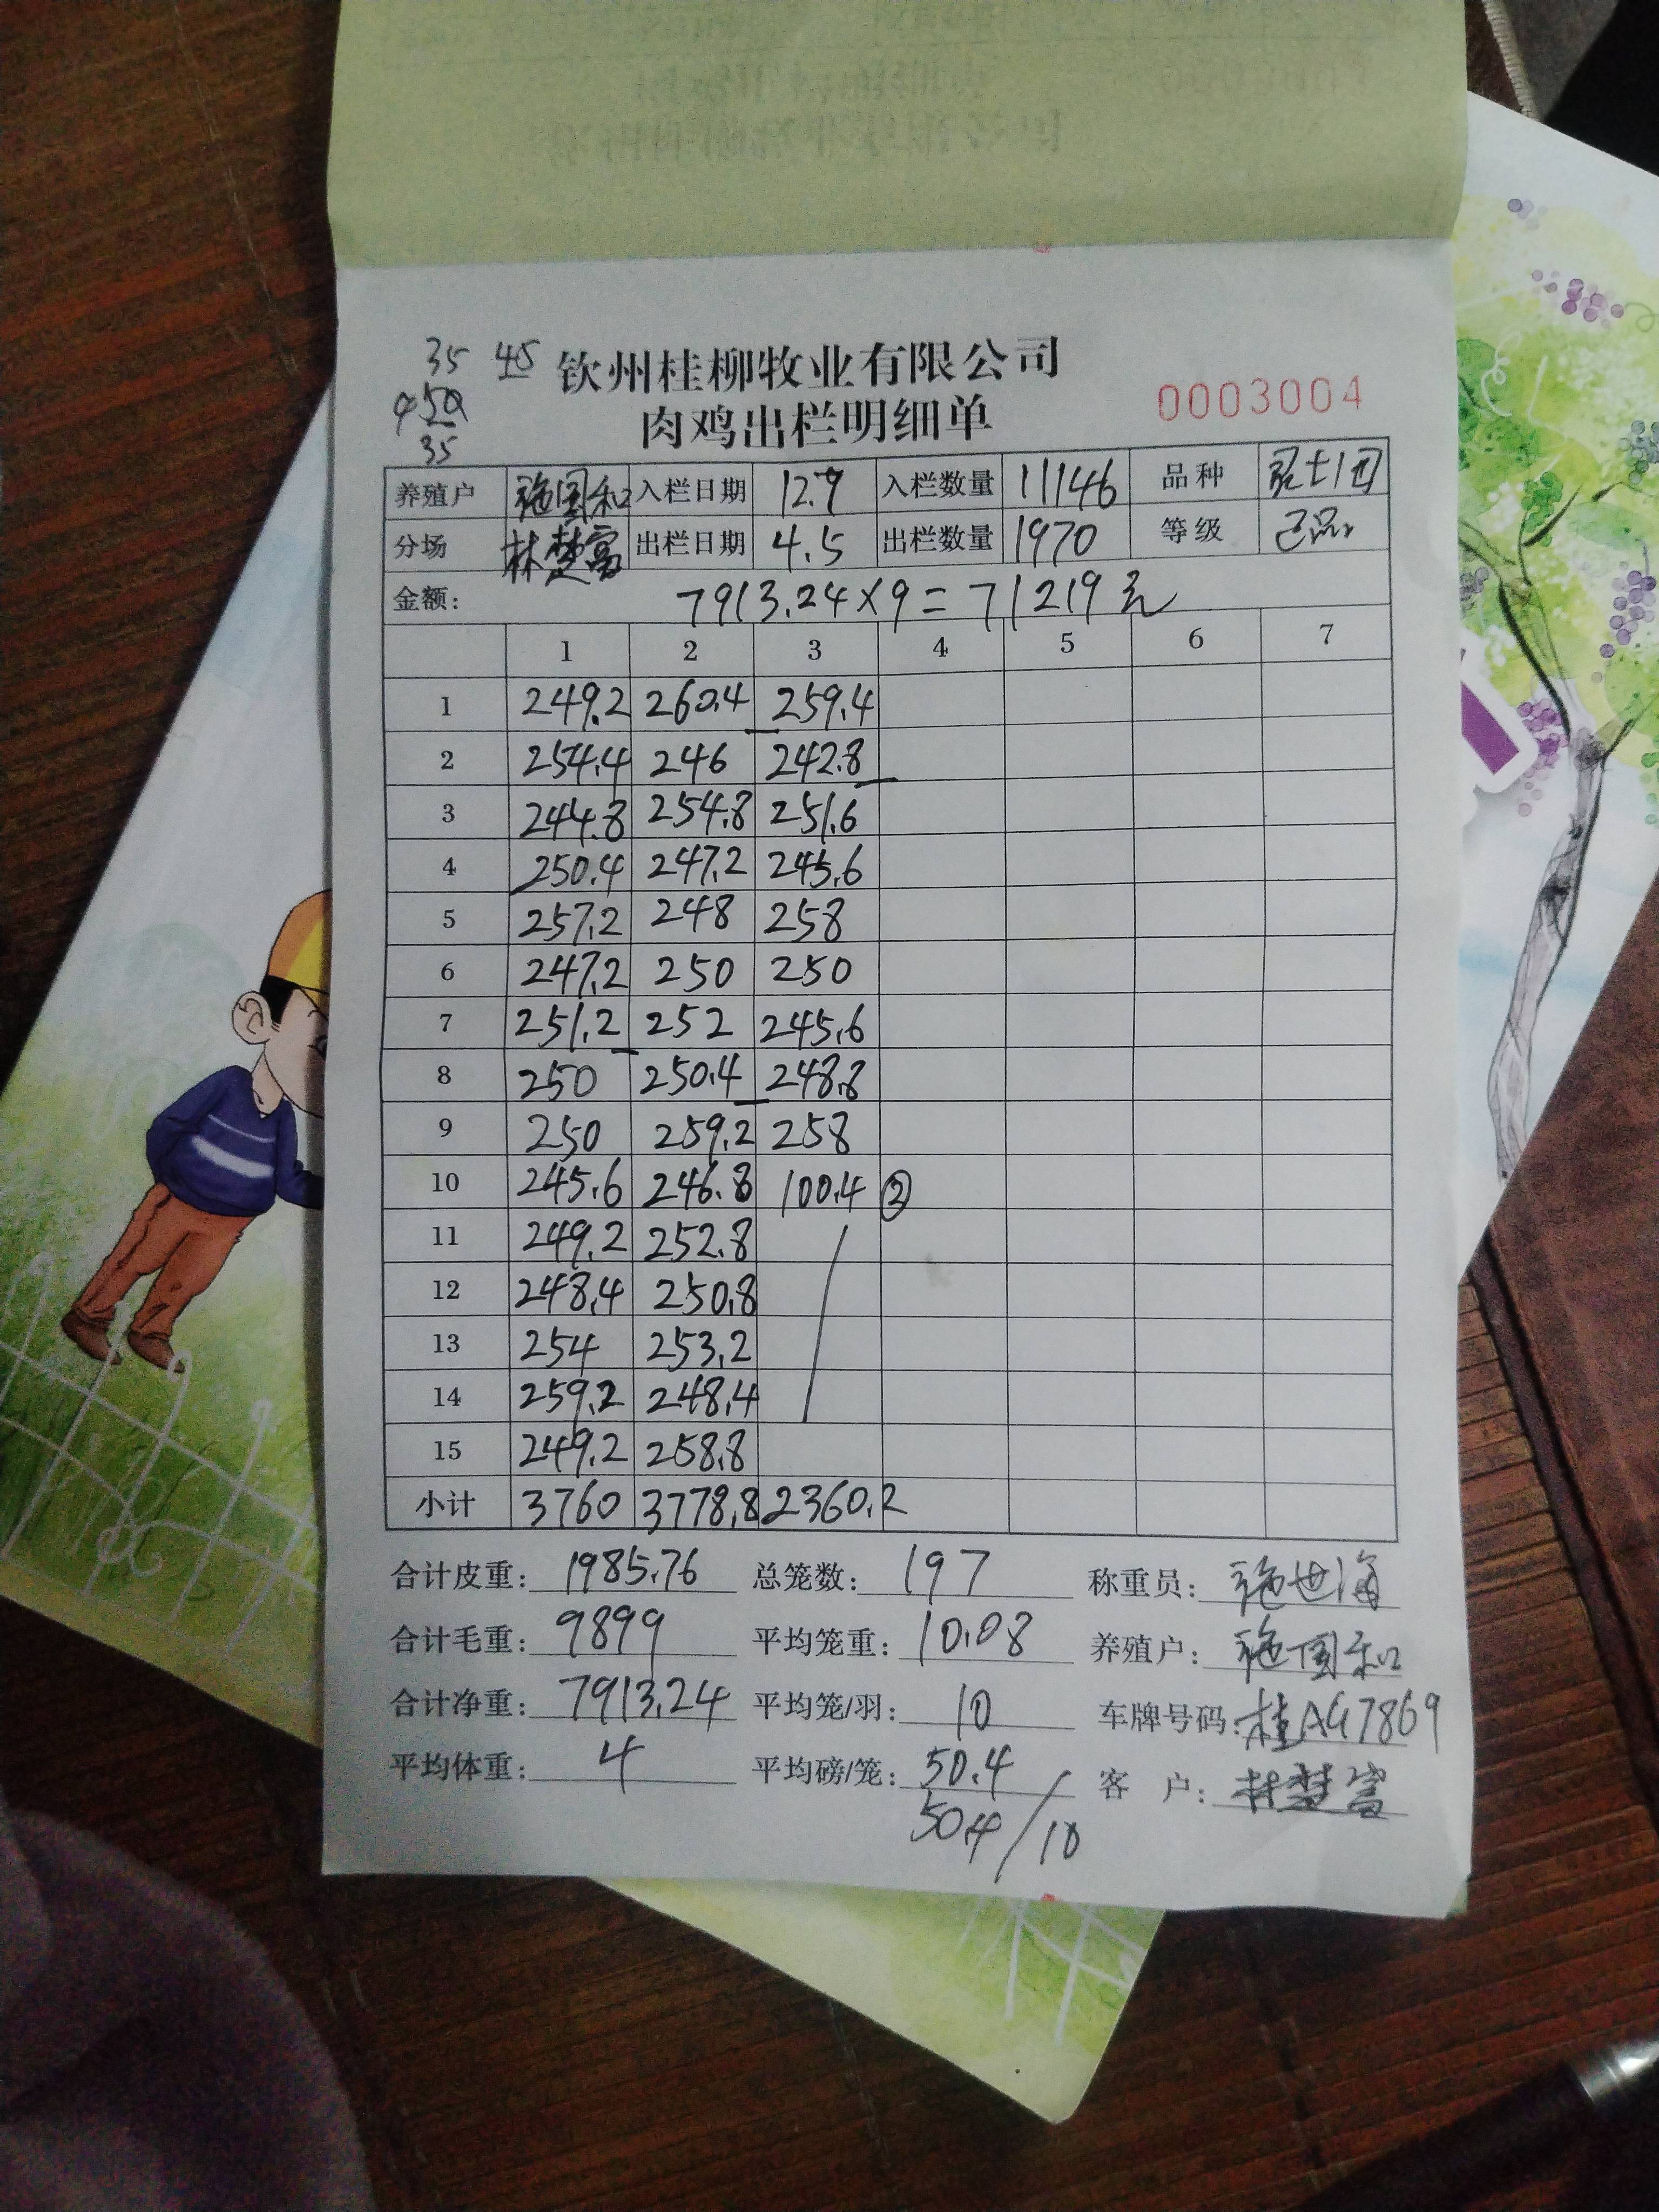 35 45 钦州桂柳牧业有限公司
肉鸡出栏明细单 0003004
35
养殖户 施国和 入栏日期 12.9 入栏数量 11146 品种
分场 林楚富 出栏日期 4.5 出栏数量 1970 等级
金额: 7913.24×9=71219元
1 2 3 4 5 6 7
1 249.2 260.4 259.4
2 254.4 246 242.8
3 244.8 254.8 251.6
4 250.4 247.2 245.6
5 257.2 248 258
6 247.2 250 250
7 251.2 252 245.6
8 250 250.4 248.8
9 250 259.2 258
10 245.6 246.8 100.4 ②
11 249.2 252.8
12 248.4 250.8
13 254 253.2
14 259.2 248.4
15 249.2 258.8
小计 3760 3778.8 2360.2
合计皮重: 1985.76 总笼数: 197 称重员: 施世海
合计毛重: 9899 平均笼重: 10.08 养殖户: 施国和
合计净重: 7913.24 平均笼/羽: 10 车牌号码: 桂AG7869
平均体重: 4 平均磅/笼: 50.4 客 户: 林楚富
50.4/10